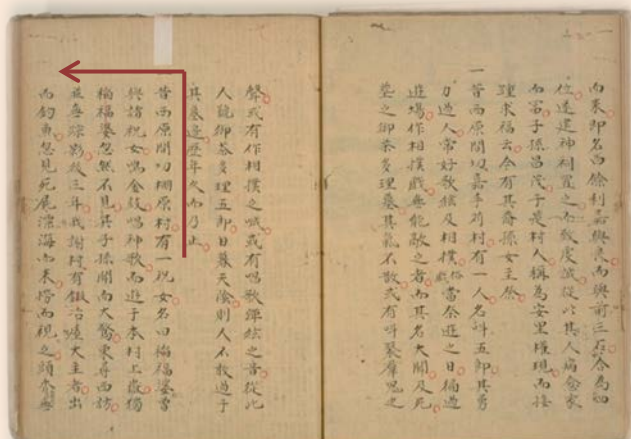 而來即名曰餘利嘉與良而與前三石合為四
位遂建神刹置之而致虔誠從此其人病愈家
而富子孫昌茂于是村人稱為安里權現而接
踵求福云今有其裔孫女主祭
一昔西原間切嘉手苅村有一人名叫五郎其勇
力過人常好歌絃及相撲戲俗當祭遊之日稱遊
遊場作相撲戲無能敵之者而其名大聞及死
葬之御茶多理墓其氣不散或有呼聚群鬼之
聲或有作相撲之喊或有唱歌彈絃之音從此
人號御茶多理五郎日暮天陰則人不敢過于
其墓邊歷年久而乃止
一昔西原間切棚原村有一祝女名曰稲福婆嘗
與諸祝女鳴金鼓唱神歌而遊于本村上嶽獨
稲福婆忽然不見其子孫聞而大驚東尋西訪
並無踪影故三年我謝村有鍛冶爐大主者出
而釣魚忽見死尾漂海而來撈而視之頭髮無